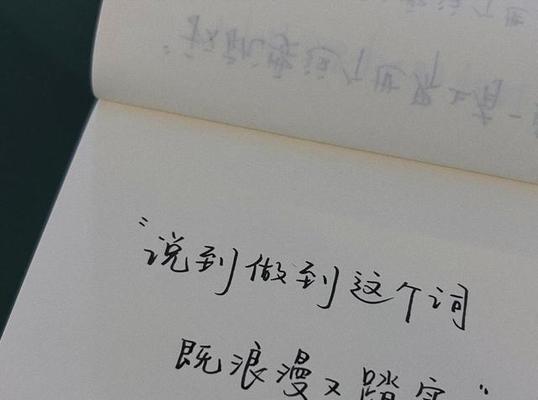 "说到做到这个词
既浪漫又踏实"